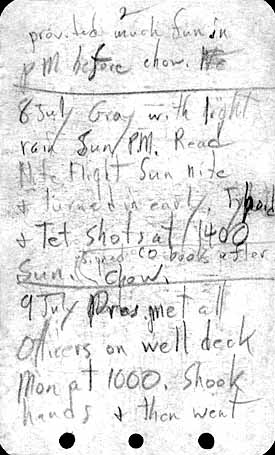 2
provided much Sun in
PM before chow. We
8 July Gray with light
rain Sun PM. Read
Nite Flight Sun nite
& turned in early. Typoid
& Tet shots at 1400
Sun. (Signed CO book after
chow.
9 July Pres. met all
Officers on well deck
Mon at 1000. Shook
hands & then went